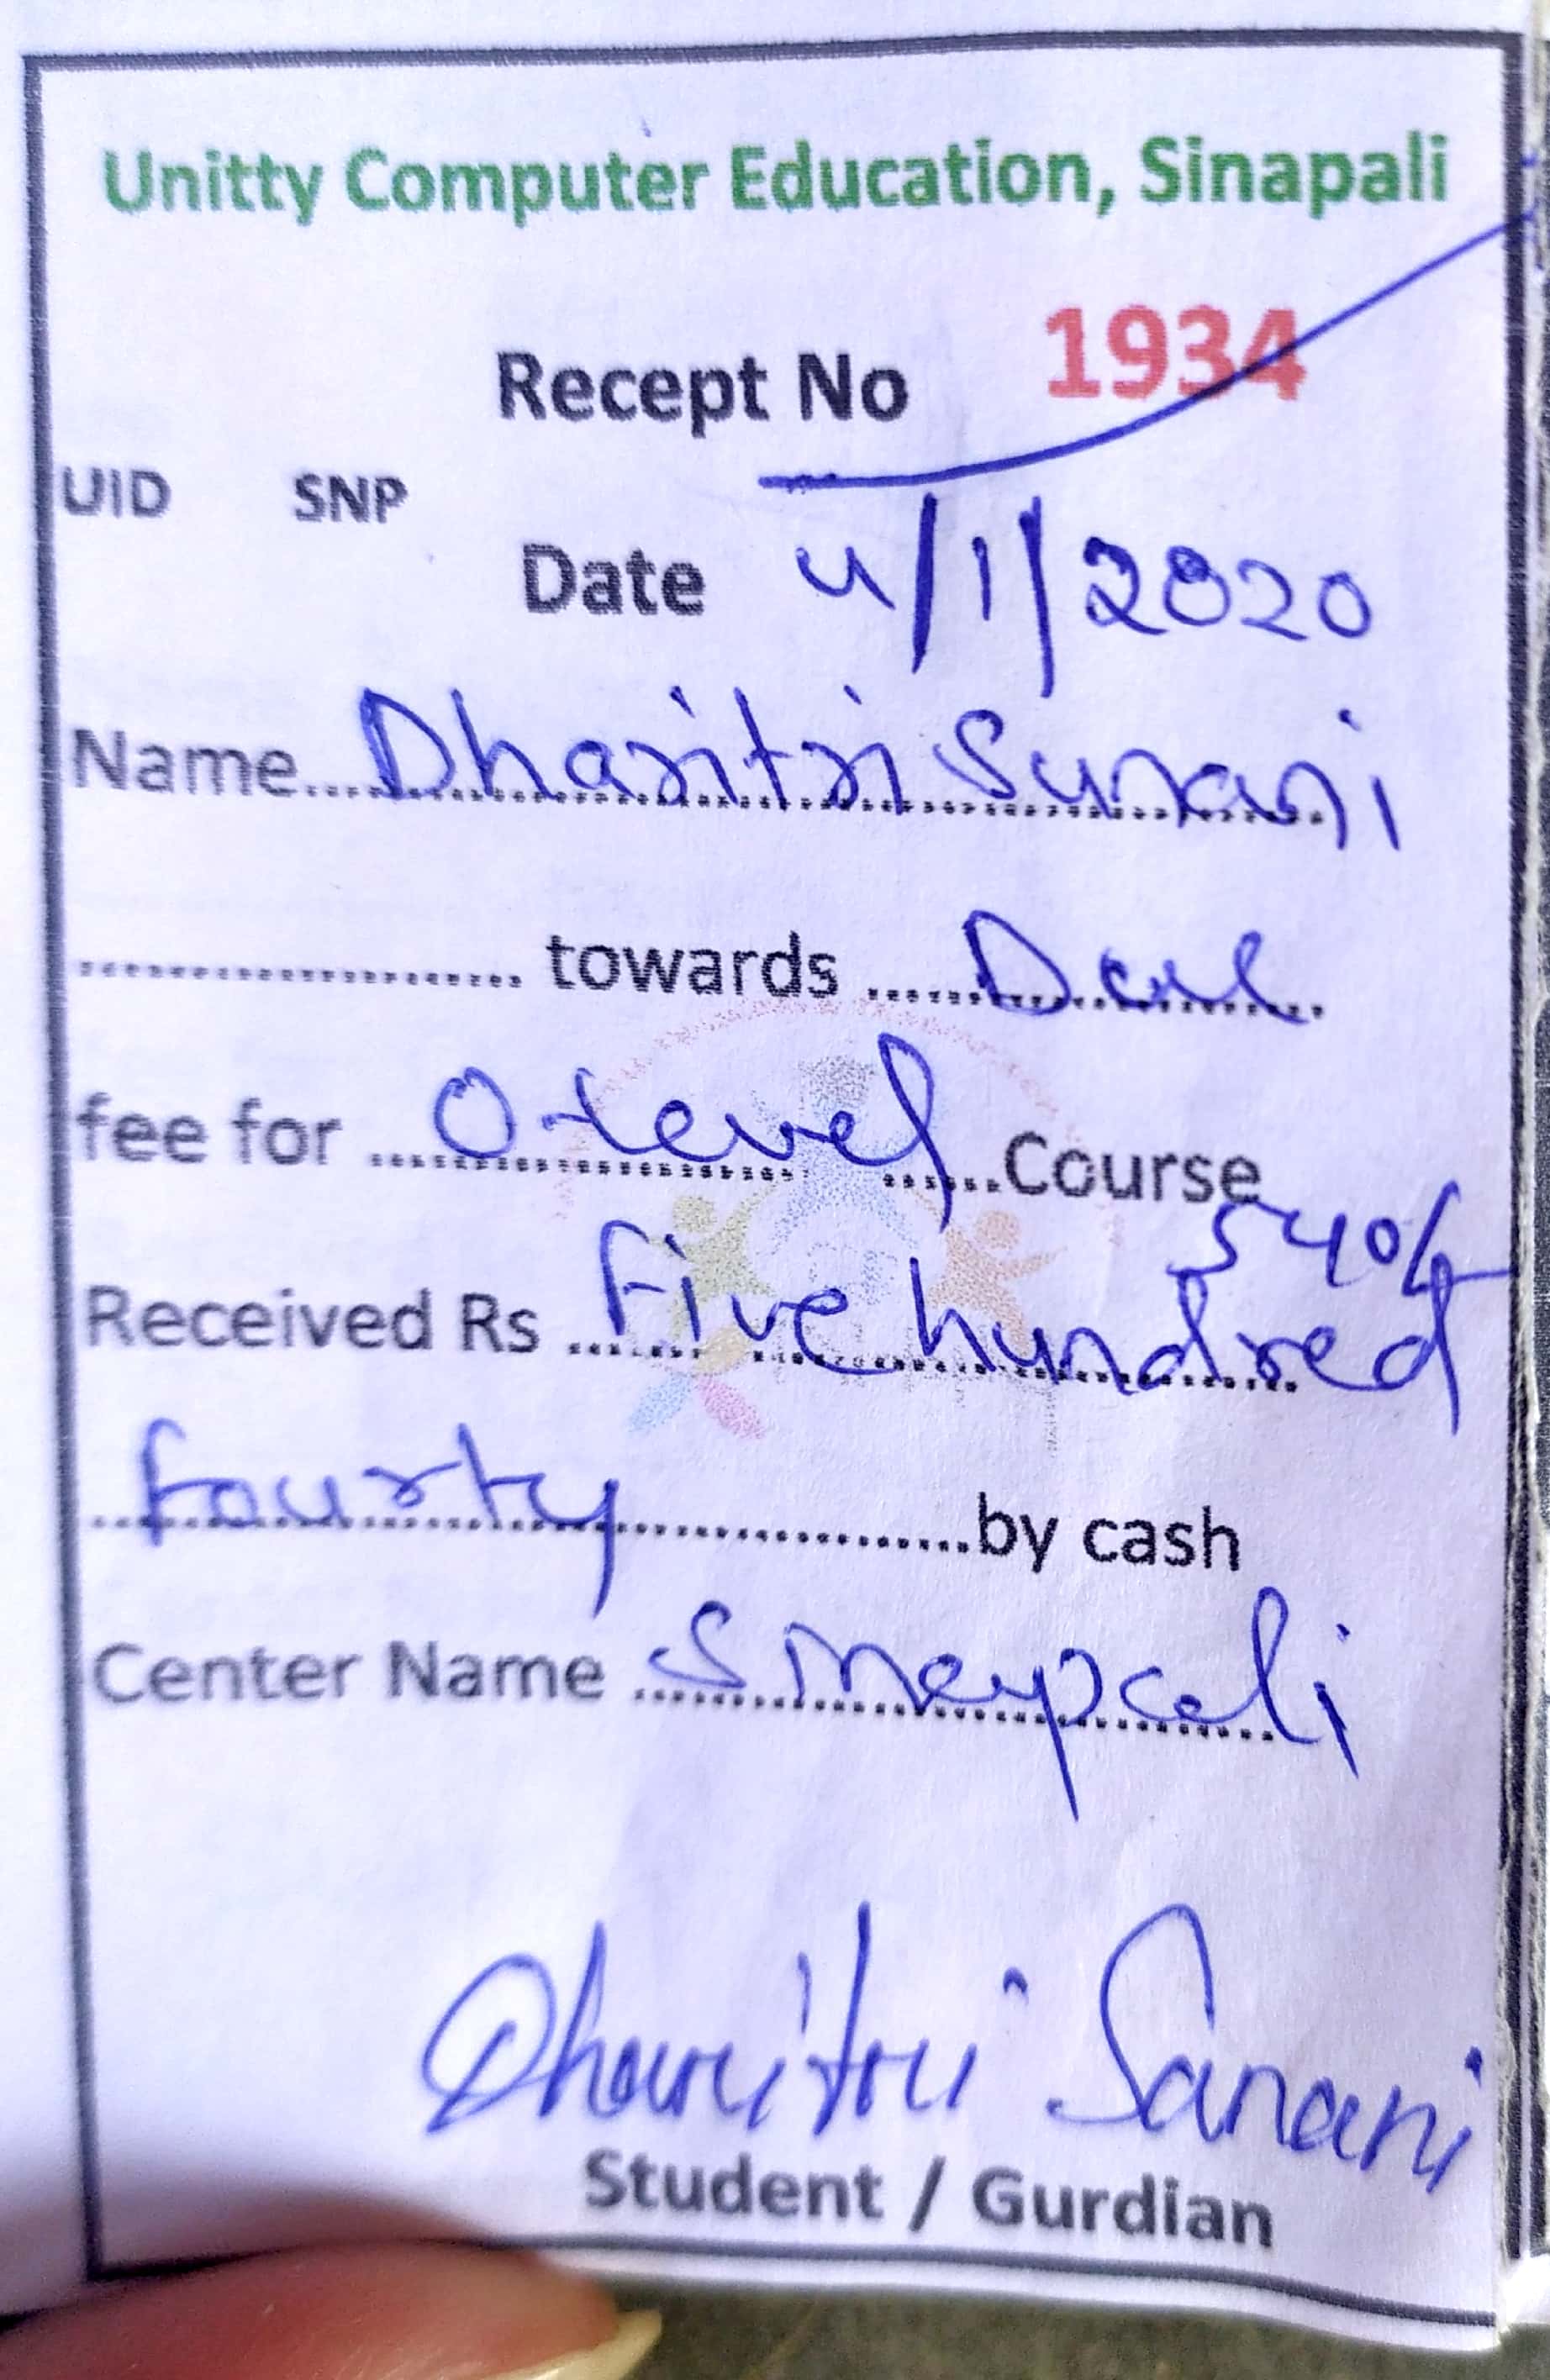 Unitty Computer Education, Sinapali
Recept No 1934
UID SNP
Date 4/1/2020
Name Dharitri Sunani
towards
fee for O-Level Course
540/-
Received Rs Five hundred
fourty by cash
Center Name
Dharitri Sanani
Student / Gurdian